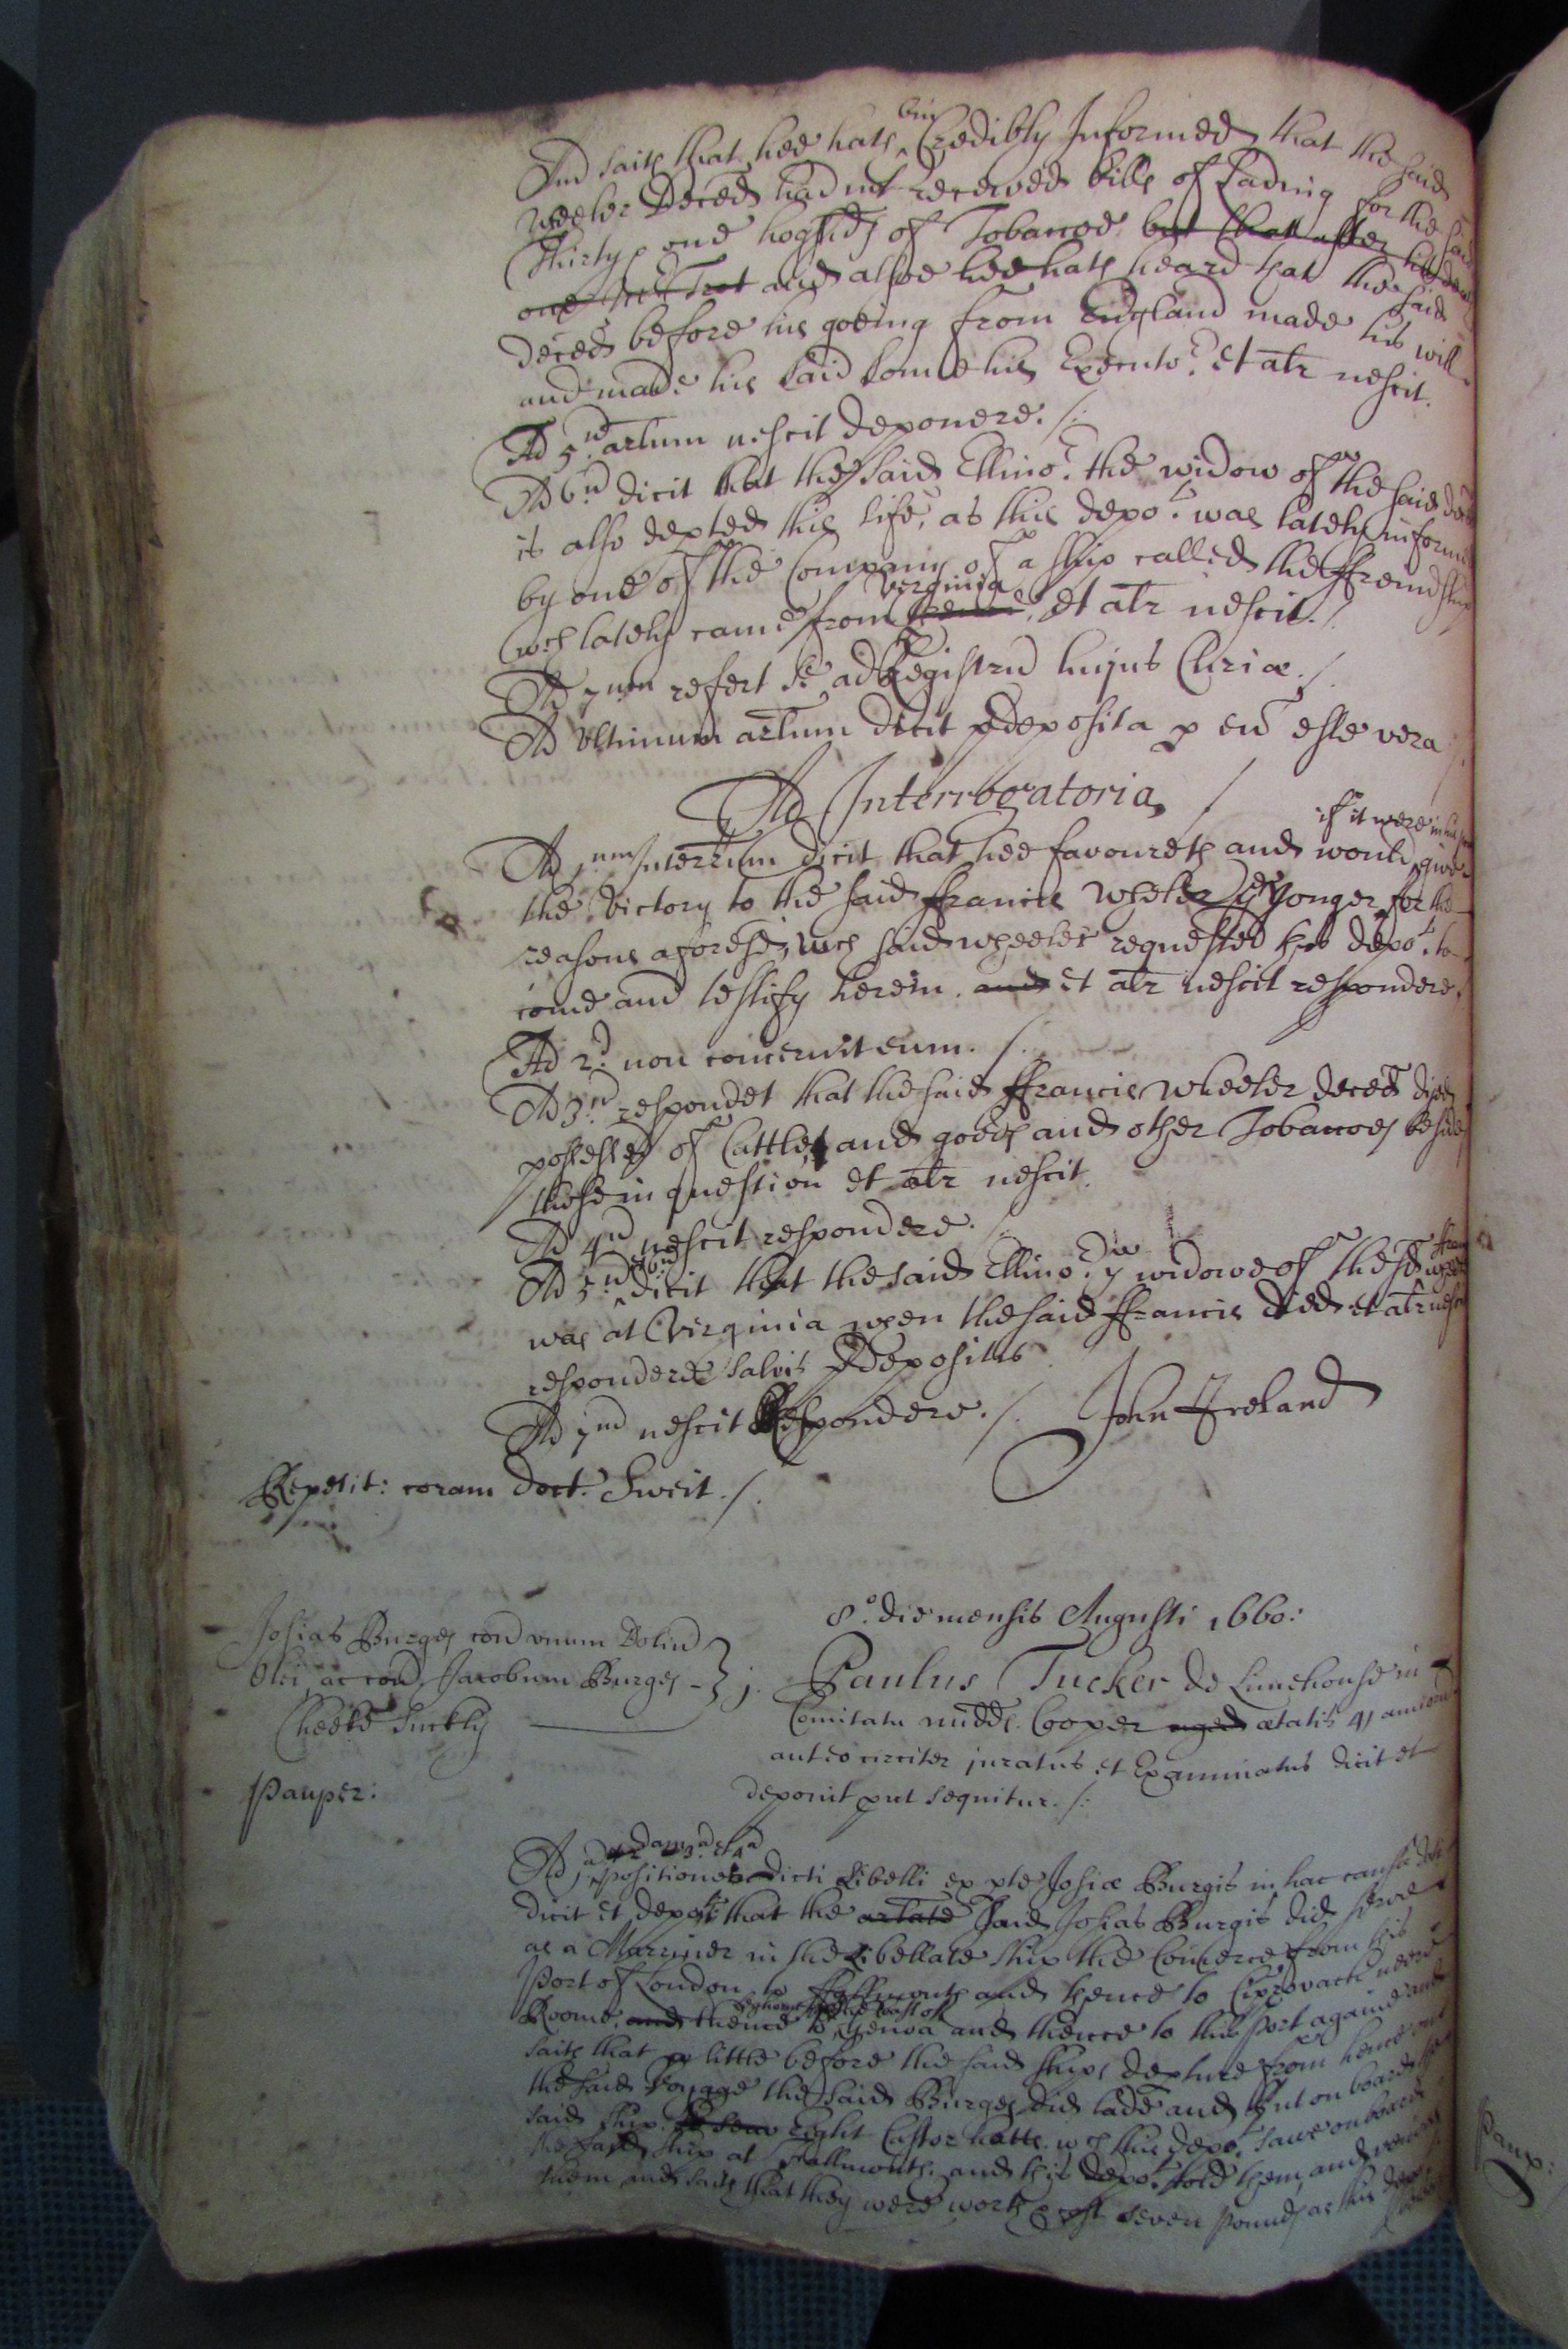 And saith that hee hath bin Credibly Informed that the said
Weeler deced had not received bills of Lading for the said
Thirty one hoghds of Tobaccoe but that after his
and alsoe hee hath heard that the said
deced before his goeing from England made his will
and made his said sonne his Executor. et altr nescit.
Ad 5um artum nescit deponere ./:
Ad 6um dicit that the said Ellinor the widow of the said deced
is also depted this life, as this depot was lately informed
by one of the Company of a ship called the ffreindship
wch lately came from Virginia, et altr nescit ./
Ad 7um refert se ad Registrũ hujus Curiæ ./.
Ad Ultimum artum dicit pdeposita p eũ esse vera ./.
Ad Interrogatoria /
Ad 1um Interrium dicit that hee favoureth and would if it were in his power give
the victory to the said ffrancis Wheeler ye Yonger for the
reasons aforesd, wch said wheeler requested his depot to
come and testify herein. and et altr nescit respondere.
Ad 2d non concernit eum. /.
Ad 3um respondet that the said ffrancis Wheeler deced dyed
possessed of Cattle and goods and other Tobaccoes besides
these in question et altr nescit.
Ad 4um nescit respondere. /.
Ad 5um et 6um dicit that the said Ellinor ye widdowe of the sd ffran: wheeler
was at Virginia when the said ffrancis died et altr nescit
respondere salvis pdepositis
Ad 7um nescit Respondere. /. John Ireland
Repetit: coram doct. Sweit ./.
8o. die mensis Augusti 1660:
Josias Burges con unum Dolium
Olei, ac con Jacobum Burges
Cheeke Suckly
Pauper:
j. Paulus Tucker de Limehouse in
Comitatu midds. Cooper aged ætatis 41 annorum
aut eo circiter juratus et Examinatus dicit et
deponit put sequitur. /:
Ad 1 2dam 3d et 4d positiones dicti Libelli ex pte Josiæ Burgis in hac causa
dicit et depot that the arlate said Josias Burgis did serve
as a Marriner in the Libellate ship the Comerce from this
Port of London to ffallmouth and thence to Ciprovach neere
Roome, and thence to Genoa and thence to this Port againe and
saith that a little before the said ships depture from hence on
the said Voyage the said Burges did lade and put on board the
said ship Eight Castor hatts wch this depot sawe on board
the said ship at Fallmouth and this depot told them, and
them and saith that they were worth seven pounds as this depot